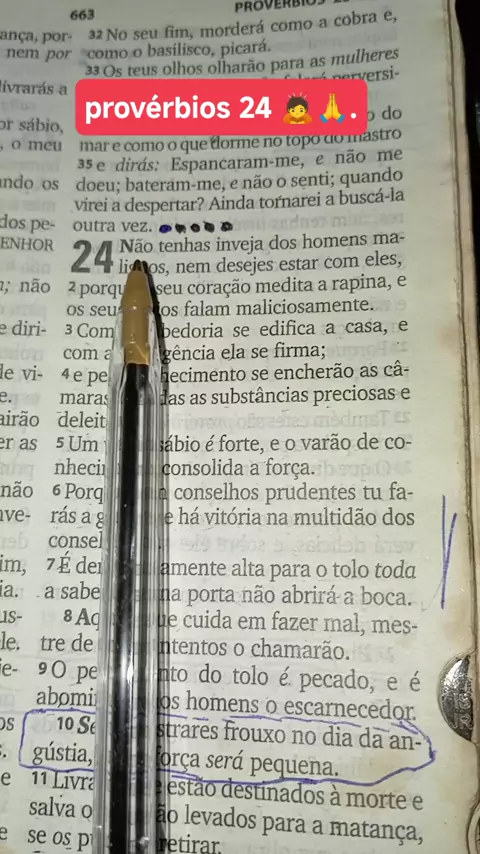 663
PROVÉRBIOS
ança, por-
nem por
livrarás a
or sábio,
, o meu
ando os
dos pe-
ENHOR
n; não
e diri-
de vi-
e.
airão
er as
não
nve-
im,
ia.
us-
le.
ie-
os
s.
e
32 No seu fim, morderá como a cobra e,
como o basilisco, picará.
33 Os teus olhos olharão para as mulheres
perversi-
provérbios 24 🙇🙏.
o do
mar e como o que dorme no topo do mastro
35 e dirás: Espancaram-me, e não me
doeu; bateram-me, e não o senti; quando
virei a despertar? Ainda tornarei a buscá-la
outra vez.
24 Não tenhas inveja dos homens ma-
os, nem desejes estar com eles,
2 porqu seu coração medita a rapina, e
os seu os falam maliciosamente.
3 Com bedoria se edifica a casa, e
com a gência ela se firma;
4 e pe hecimento se encherão as câ-
maras das as substâncias preciosas e
deleit
5 Um sábio é forte, e o varão de co-
nheci consolida a força.
6 Porq conselhos prudentes tu fa-
rás a g e há vitória na multidão dos
consel
7 É de amente alta para o tolo toda
a sabe na porta não abrirá a boca.
8 Aq ue cuida em fazer mal, mes-
tre de ntentos o chamarão.
9 O pe nto do tolo é pecado, e é
abomi os homens o escarnecedor.
10 Se strares frouxo no dia da an-
gústia, força será pequena.
11 Livra e estão destinados à morte e
salva o ão levados para a matança,
se os p retirar.